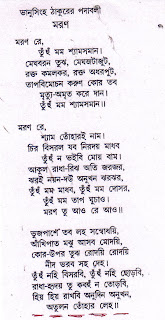 ভানুসিংহ ঠাকুরের পদাবলী
মরণ
মরণ রে,
তুঁহুঁ মম শ্যামসমান।
মেঘবরন তুঝ, মেঘজটাজূট,
রক্ত কমলকর, রক্ত অধরপুট,
তাপবিমোচন করুণ কোর তব
মৃত্যু-অমৃত করে দান।
তুঁহুঁ মম শ্যামসমান॥
মরণ রে,
শ্যাম তোঁহারই নাম।
চির বিসরল যব নিরদয় মাধব
তুঁহুঁ ন ভইবি মোয় বাম।
আকুল রাধা-রিঝ অতি জরজর,
ঝরই নয়ন-দউ অনুখন ঝরঝর,
তুঁহুঁ মম মাধব, তুঁহুঁ মম দোসর,
তুঁহুঁ মম তাপ ঘুচাও।
মরণ তু আও রে আও॥
ভুজপাশে তব লহ সম্বোধয়ি,
আঁখিপাত মঝু আসব মোদয়ি,
কোর-উপর তুঝ রোদয়ি রোদয়ি
নীদ ভরব সব দেহ।
তুঁহুঁ নহি বিসরবি, তুঁহুঁ নহি ছোড়বি,
রাধা-হৃদয় তু কবহুঁ ন তোড়বি,
হিয় হিয় রাখবি অনুদিন অনুখন,
অতুলন তোঁহার লেহ॥